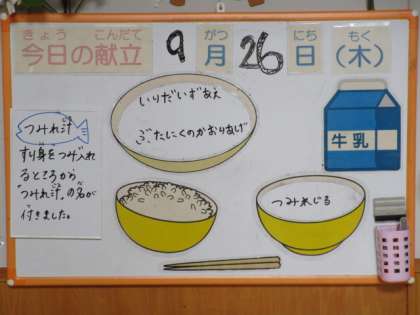 きょう こんだて
今日の献立 9月26日(木)
がつ にち もく
いりだいずあえ
ぶたにくのかおりあげ
牛乳
つみれ汁
すり身をつみ入れ
るところから
"つみれ汁"の名が
付きました。
つみれじる